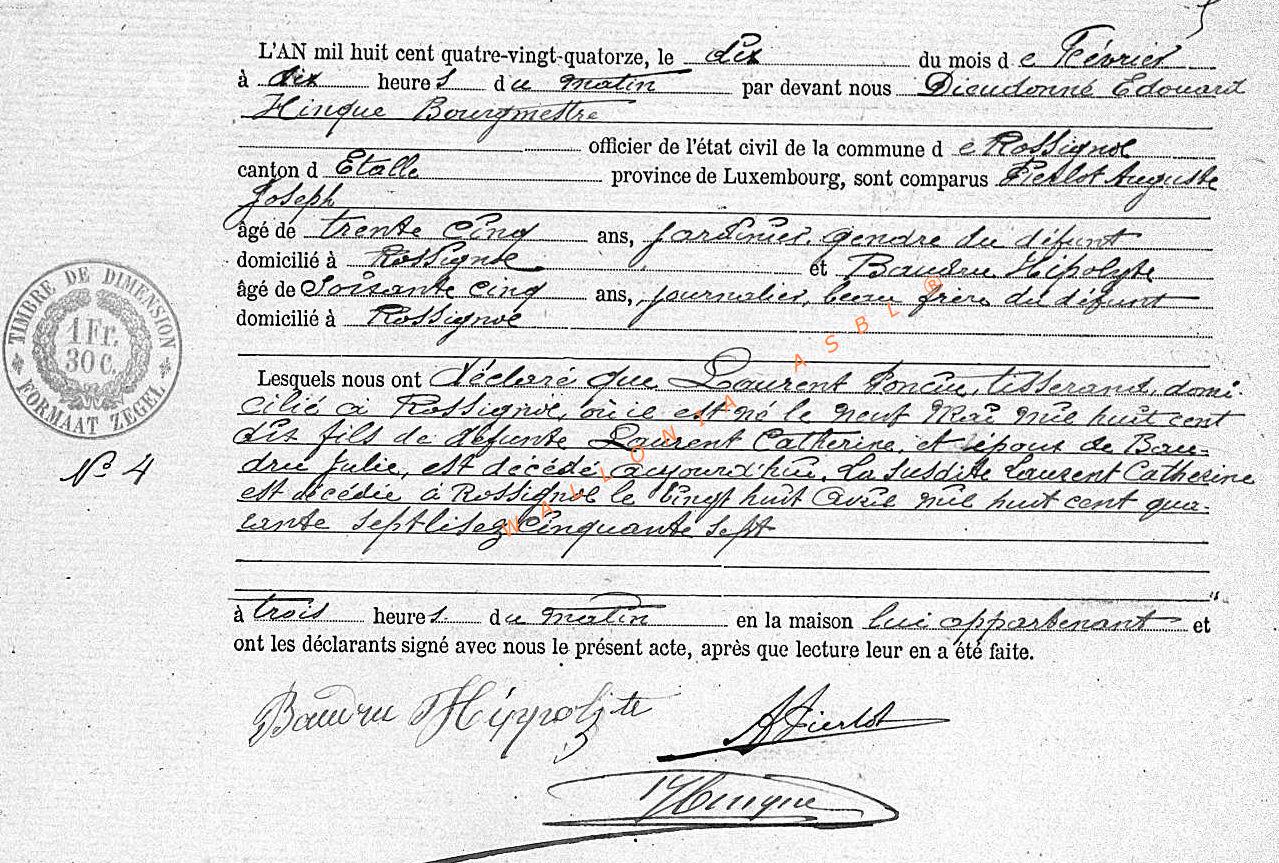 L'AN mil huit cent quatre-vingt-quatorze, le dix du mois de Février
à dix heures du matin par devant nous Dieudonné Edouard
Hinque Bourgmestre
officier de l'état civil de la commune de Rossignol
canton d Etalle province de Luxembourg, sont comparus Pierlot Auguste
Joseph
âgé de trente cinq ans, jardinier, gendre du défunt
domicilié à Rossignol et Baudru Hipolyte
âgé de Soixante cinq ans, journalier, beau frère du défunt
domicilié à Rossignol
TIMBRE DE DIMENSION
1 Fr.
30 C.
FORMAAT ZEGEL
Lesquels nous ont déclaré que Laurent Poncin, tisserand, domi-
cilié à Rossignol, où il est né le neuf Mai mil huit cent
dix fils de défunte Laurent Catherine, et époux de Bau-
dru Julie, est décédé aujourd'hui. La susdite Laurent Catherine
N° 4
est décédée à Rossignol le vingt huit avril mil huit cent qua-
rante sept lisez cinquante sept
WALLONIA ASBL ®
à trois heures du matin en la maison lui appartenant et
ont les déclarants signé avec nous le présent acte, après que lecture leur en a été faite.
Baudru Hippolite
A Pierlot
Hinque